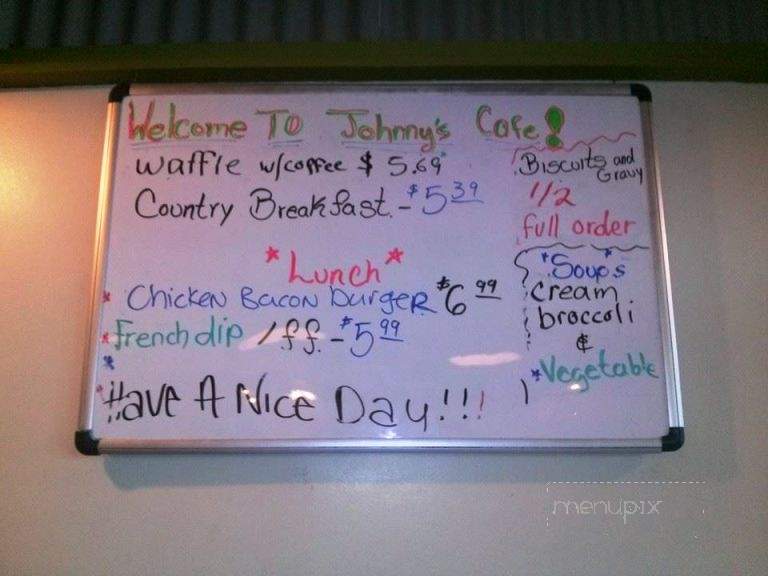 Welcome To Johnny's Cafe!
Waffle w/coffee $ 5.69
Country Breakfast - $5 39
*Lunch*
* Chicken Bacon burger $6 99
* French dip / ff. - $5 99
*
* Have A Nice Day!!!
Biscuits and Gravy
1/2
full order
*Soups*
cream
broccoli
&
*Vegetable
menupix